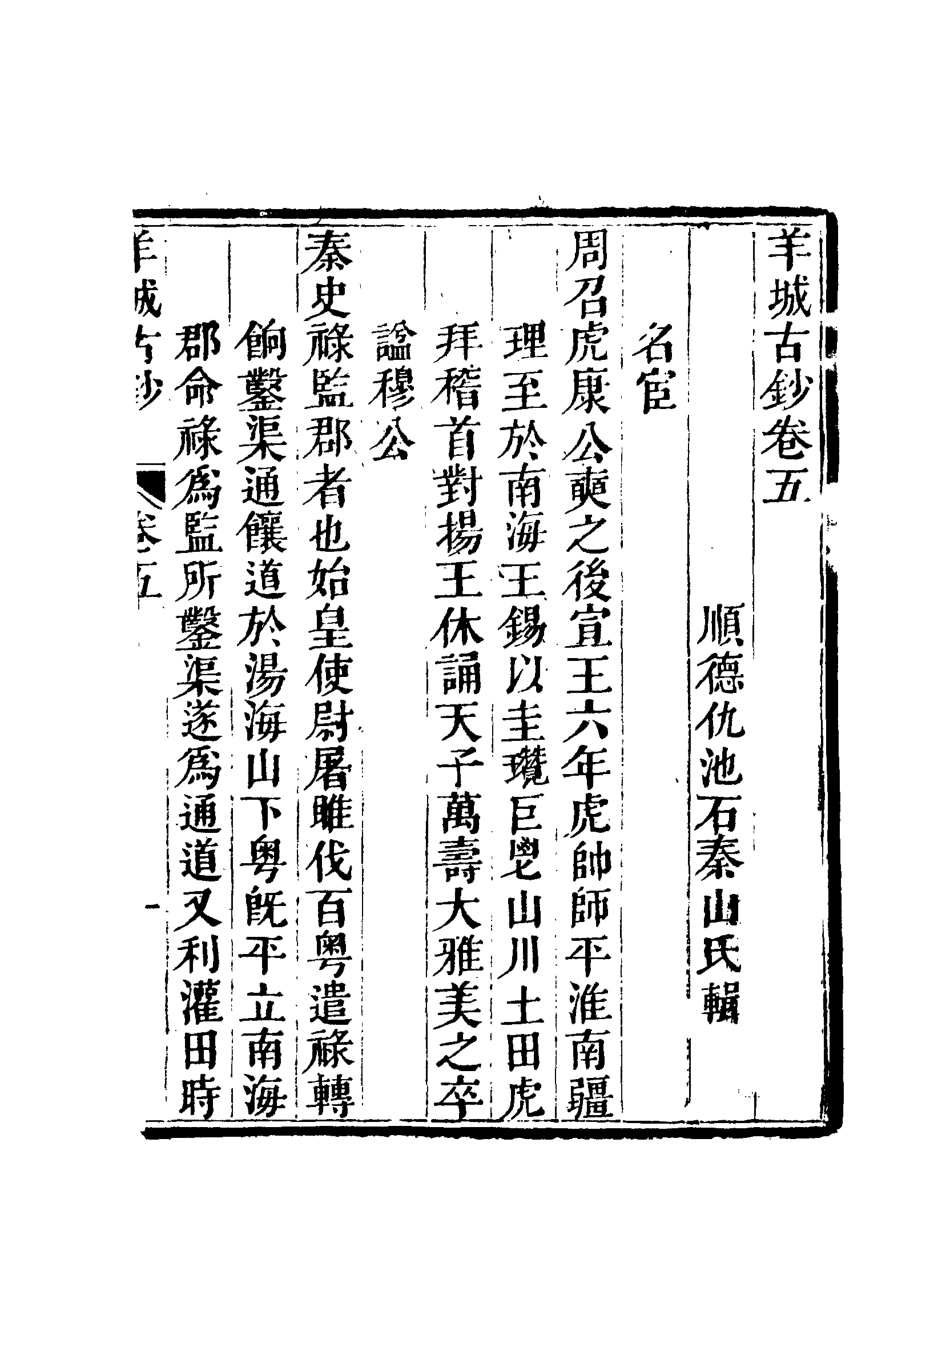 羊城古鈔卷五
順德仇池石秦山氏輯
名宦
周召虎康公奭之後宣王六年虎帥師平淮南疆
理至於南海王錫以圭瓚巨鬯山川土田虎
拜稽首對揚王休誦天子萬壽大雅美之卒
諡穆公
秦史祿監郡者也始皇使尉屠睢伐百粵遣祿轉
餉鑿渠通饟道於湯海山下粵旣平立南海
郡命祿爲監所鑿渠遂爲通道又利灌田時
羊城古鈔 卷五 一